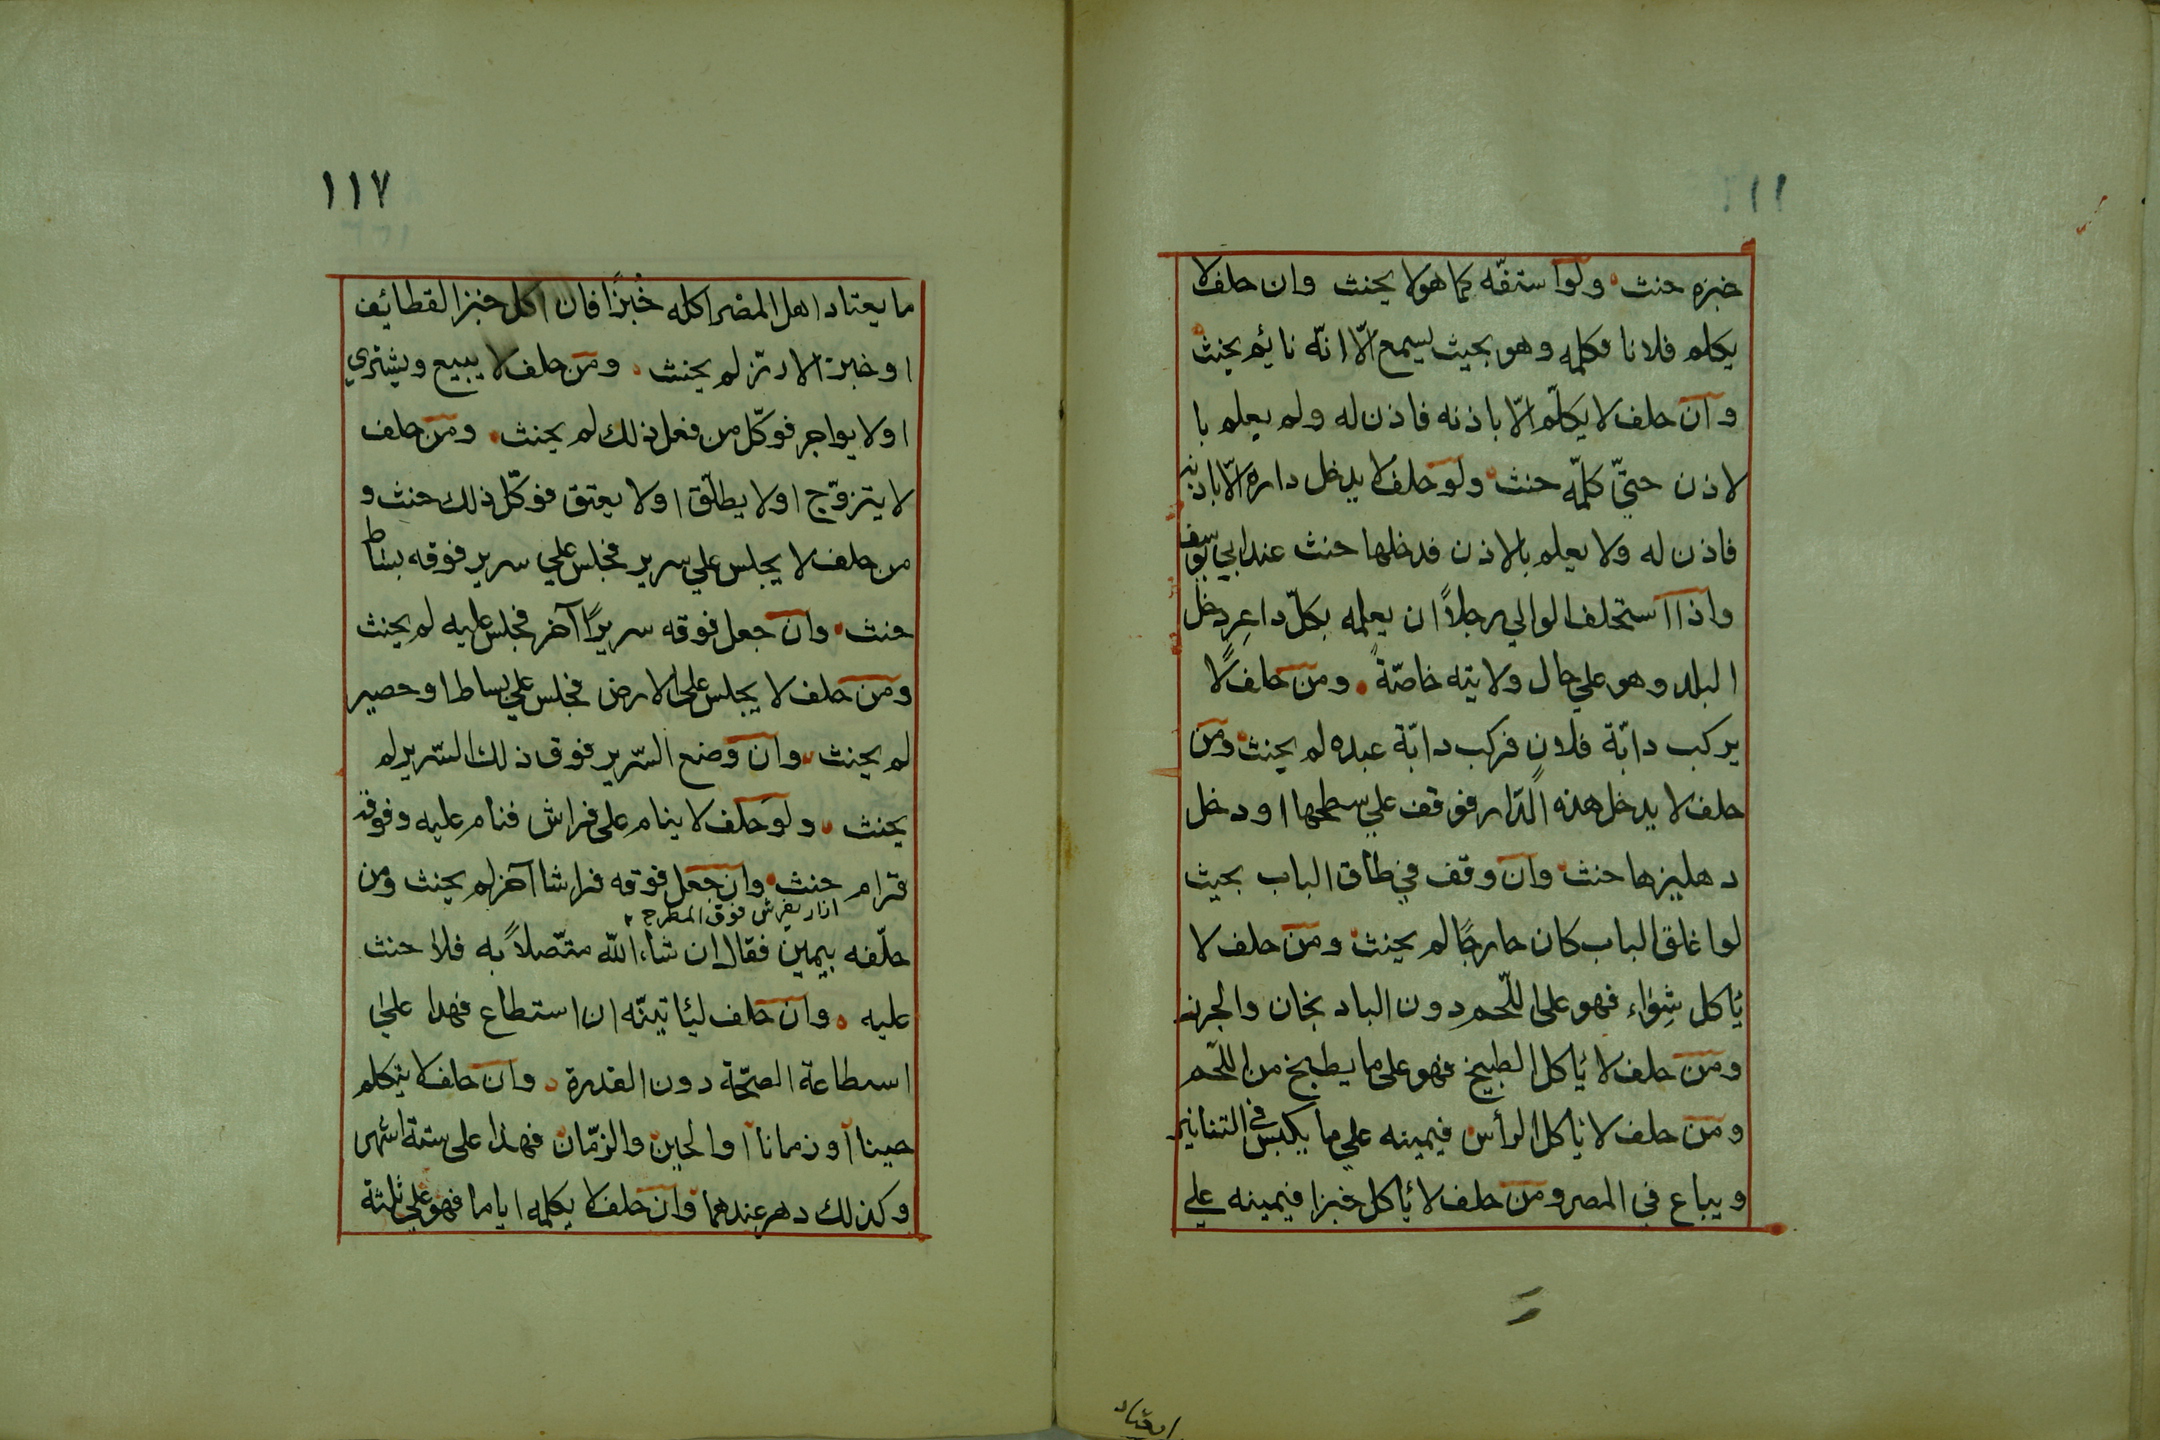 خبزه حنث ولوا ستفّه كما هو لا يحنث وان حلف لا
يكلم فلانا فكلمه وهو بحيث يسمع الّا انّه نائم يحنث
وان حلف لا يكلّم الّا باذنه فاذن له ولم يعلم با
لاذن حتيّ كلّمه حنث ولو حلف لا يدخل داره الّا باذنه
فاذن له ولا يعلم بالاذن فدخلها حنث عند ابي يوسف
واذا استحلف الوالي رجلاً ان يعلمه بكلّ داعِر دخل
البلد وهو علي حال ولايته خاصّةً ومن حلف لا
يركب دابّة فلان فركب دابّة عبده لم يحنث ومن
حلف لا يدخل هذه الدّار فوقف علي سطحها او دخل
دهليزها حنث وان وقف في طاق الباب بحيث
لوا غلق الباب كان خارجًا لم يحنث ومن حلف لا
يأكل شِوٰاء فهو على اللّحم دون الباد نجان والجزر
ومن حلف لا يأكل الطبيخ فهو على ما يطبخ من اللّحم
ومن حلف لا يأكل الرأس فيمينه علي ما يكبس في التنانير
ويباع في المصر ومن حلف لا يأكل خبزا فيمينه علي
ايعتاد
١١٧
ما يعتاد اهل المضر اكله خُبزًا فان اكل خبز القطائف
او خبز الارزّ لم يحنث ومن حلف لا يبيع ويشتري
او لا يواجر فوكّل من فعل ذلك لم يحنث ومن حلف
لا يتزوّج او لا يطلّق او لا يعتق فوكّل ذلك حنث و
من حلف لا يجلس علي سرير فجلس علي سرير فوقه بساط
حنث وان جعل فوقه سريرًا آخر فجلس عليه لم يحنث
ومن حلف لا يجلس على الارض فجلس علي بساط او حصير
لم يحنث وان وضع السّرير فوق ذلك السّرير لم
يحنث ولو حلف لا ينام على فراش فنام عليه وفوقه
قرام حنث وان جعل فوقه فراشا آخر لم يحنث ومن
ازار يفرش فوق المطرح
حلّفه بيمين فقال ان شاء اللّه متّصلاً به فلا حنث
عليه وان حلف ليأتينّه ان استطاع فهذا علىٰ
اسطاعة الصحّة دون القدرة وان حلف لا يتكلم
حينا او زمانا او الحين والزمّان فهذا على ستة اشهر
وكذلك دهر عندهما وان حلف لا يكلمه اياما فهو علي ثلثة